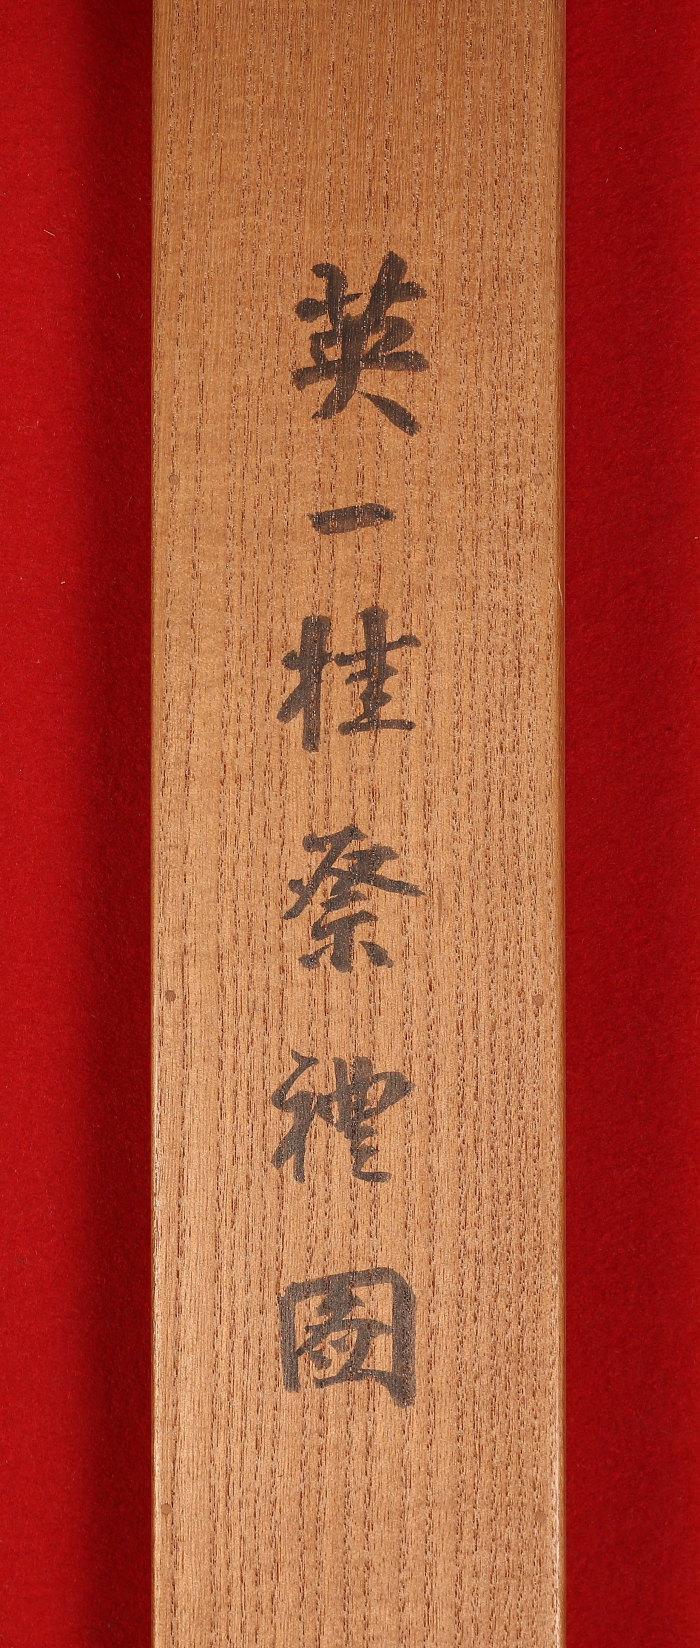 英一桂祭禮圖